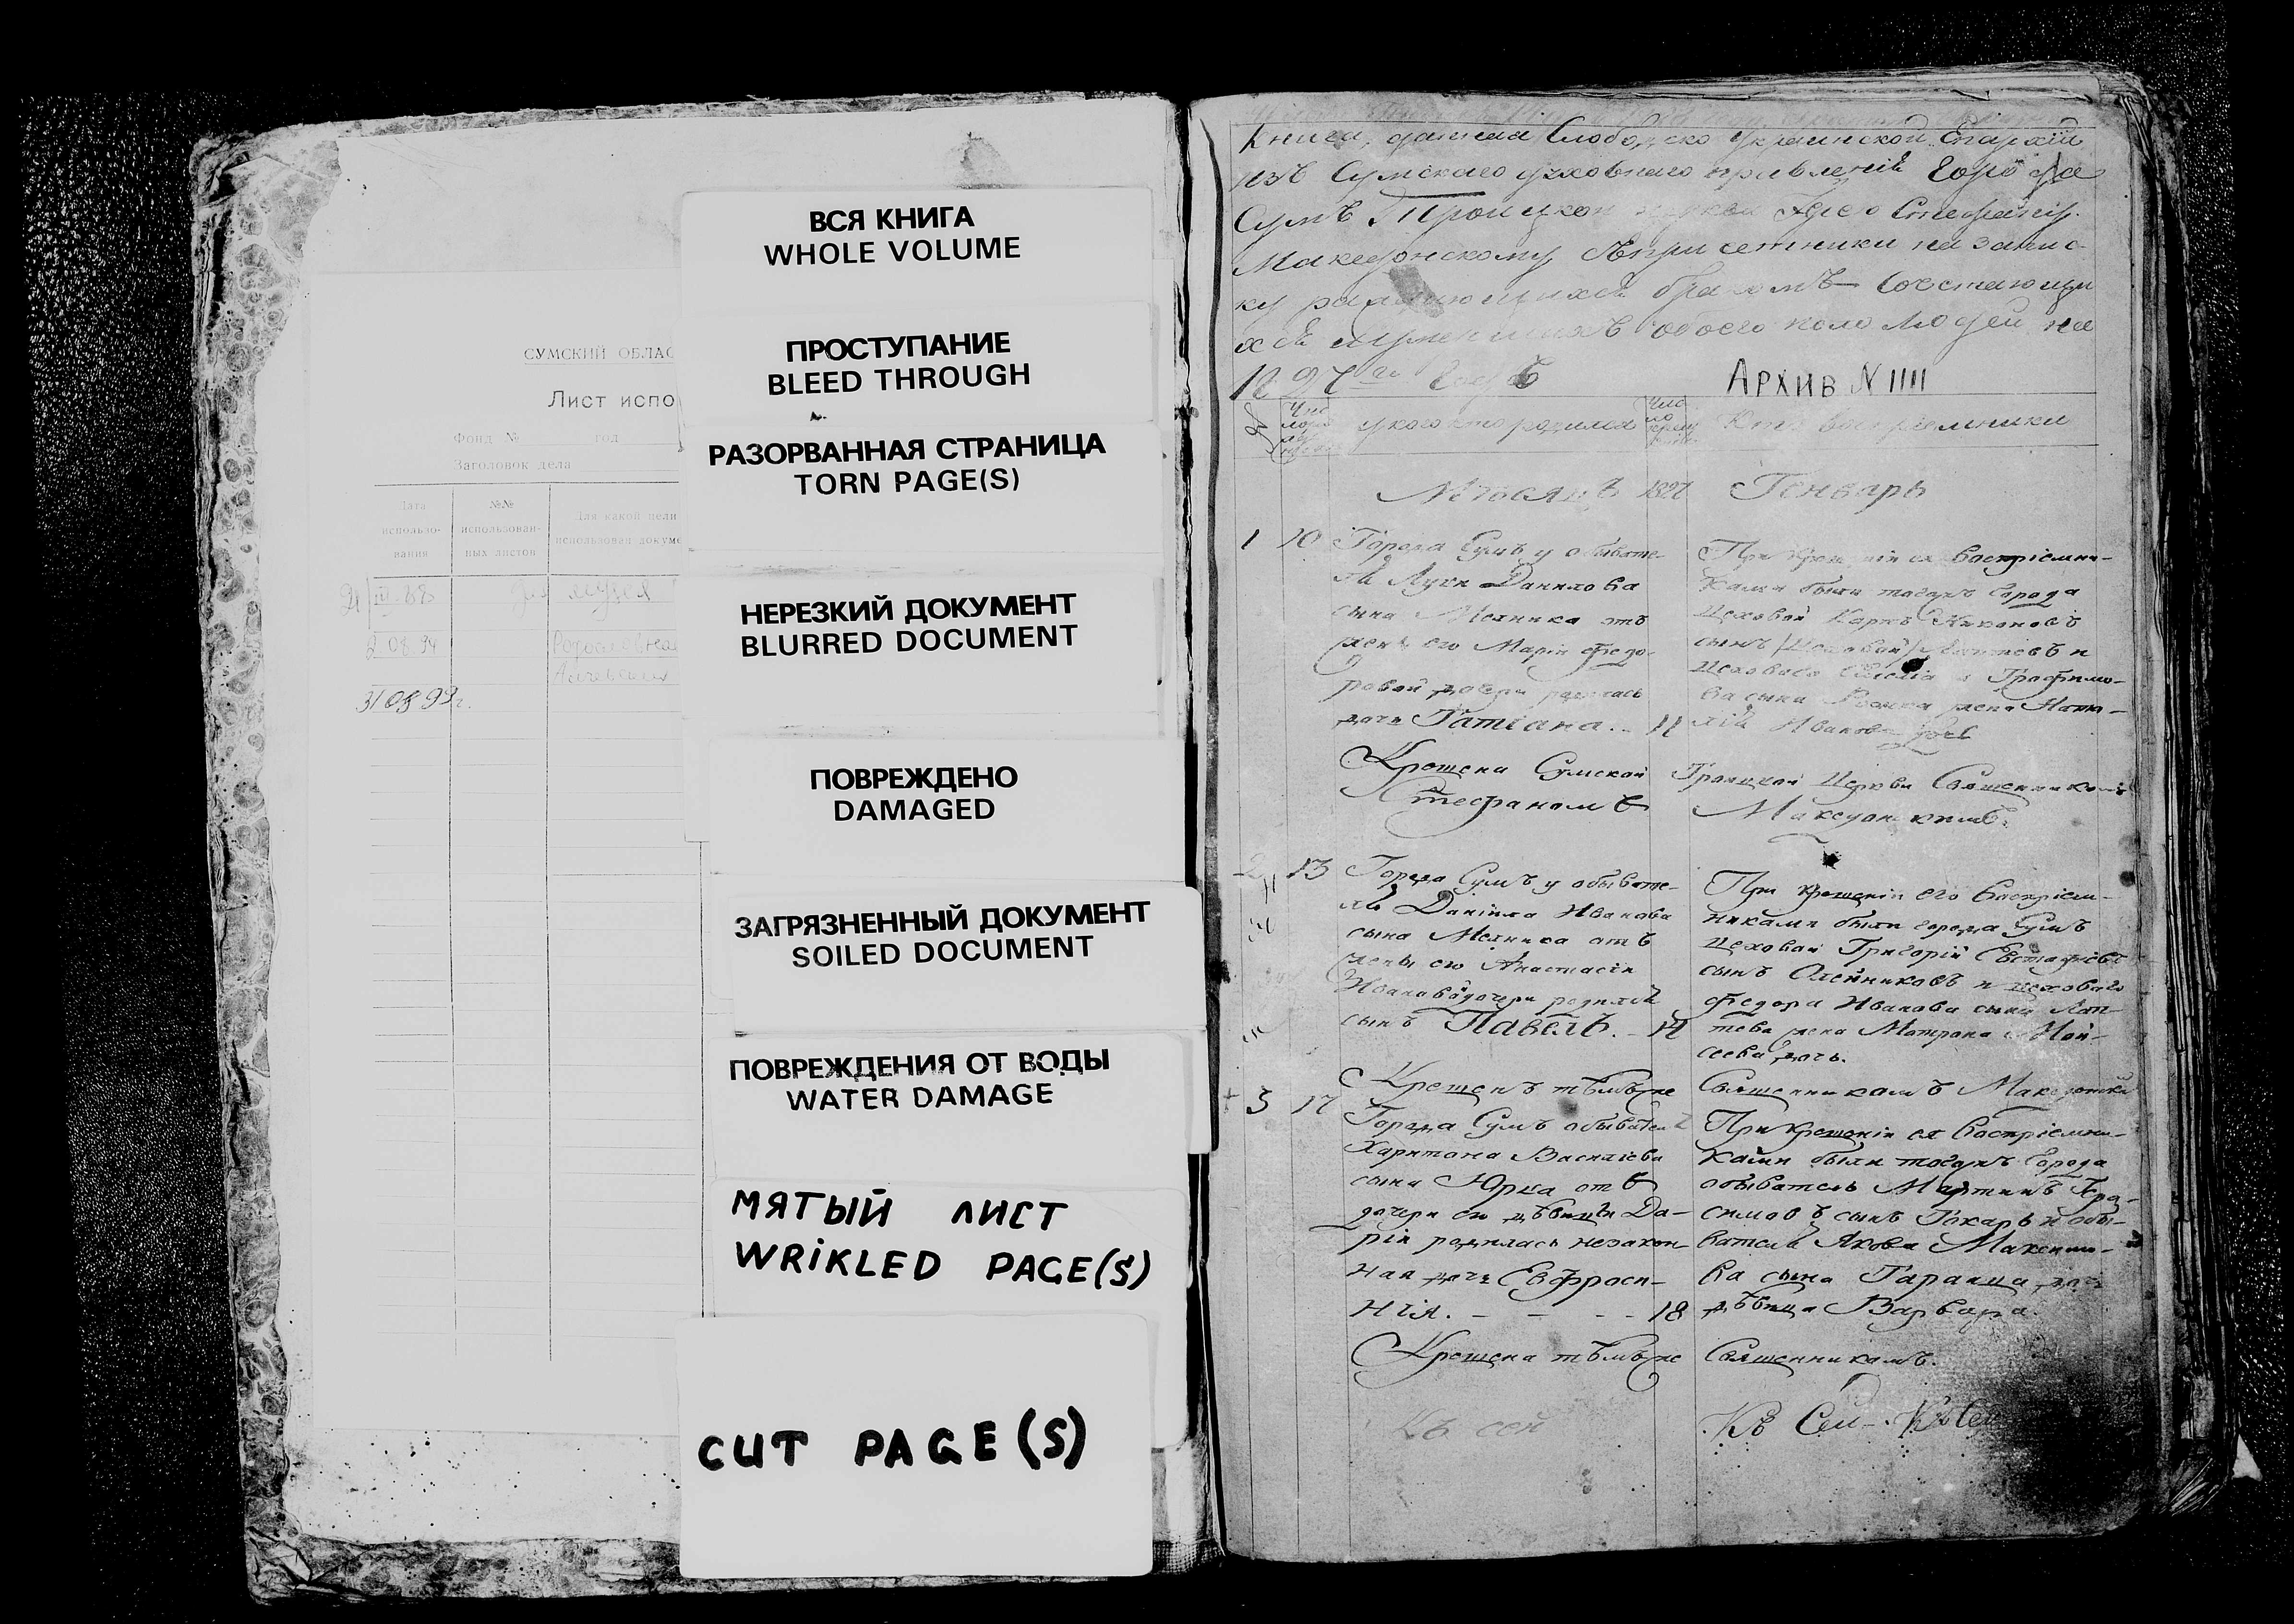 СУМСКИЙ ОБЛАС
Лист испо
Фонд № год
Заголовок дела
Дата использо-вания
№№ использован-ных листов
Для какой цели использован докуме
III-88 для музея
2 08.94
31 08 99г.
ВСЯ КНИГА
WHOLE VOLUME
ПРОСТУПАНИЕ
BLEED THROUGH
РАЗОРВАННАЯ СТРАНИЦА
TORN PAGE(S)
НЕРЕЗКИЙ ДОКУМЕНТ
BLURRED DOCUMENT
ПОВРЕЖДЕНО
DAMAGED
ЗАГРЯЗНЕННЫЙ ДОКУМЕНТ
SOILED DOCUMENT
ПОВРЕЖДЕНИЯ ОТ ВОДЫ
WATER DAMAGE
МЯТЫЙ ЛИСТ
WRIKLED PAGE(S)
CUT PAGE(S)
Книга, данная Слободско Украинской Епархіи
изъ Сумскаго духовнаго правленія города
Сумъ Троицкой Іерею Стефану
Македонскому на запис-
ку бракомъ
обоего пола людей на
АРХИВ N 1111
у кого кто родился
Кто воспріемники
Мѣсяцъ 1827 Генварь
1 10 Города Сумъ у обывате-
ля Луки Данилова
сына Мелника отъ
жены его Маріи Федо-
ровой дочери родилась
дочь Татіана. 11
При крещеніи ея воспріемни-
ками были тогожъ города
Цеховой Карпъ
сынъ и
Цеховаго Трофимо-
ва сына жена Ната-
лія Иванова дочь
Крещена Сумской Троицкой Церкви Священникомъ
Стефаномъ Македонскимъ.
2 13 Города Сумъ у обывате-
ля Даніила Иванова
сына Мелника отъ
жены его Анастасіи
Ивановой дочери родился
сынъ Павелъ. 14
При крещеніи его воспріем-
никами были города Сумъ
Цеховой Григорій Евстафіевъ
сынъ Олейниковъ и цеховаго
Федора Иванова сына Лап-
тева жена Матрона Мой-
сеева дочь.
Крещенъ тѣмъже Священникомъ Македонски
3 17 Города Сумъ обывателя
Харитона Василіева
сына Юрка отъ
дочери его дѣвицы Да-
ріи родилась незакон-
ная дочь Евфроси-
нія. 18
При крещеніи ея воспріемни-
ками были тогожъ города
обыватель Мартинъ Гера-
симовъ сынъ Токарь и обы-
вателя Якова Максимо-
ва сына Таранца дочь
дѣвица Варвара.
Крещена тѣмъже Священникомъ.
Къ сей
Къ Сей